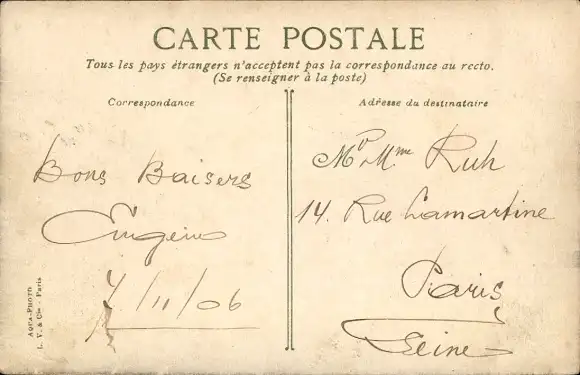 CARTE POSTALE
Tous les pays étrangers n'acceptent pas la correspondance au recto.
(Se renseigner à la poste)
Correspondance
Bons Baisers
Eugénie
7/11/06
AQUA-PHOTO
L. V. & Cie - Paris
Adresse du destinataire
Mr Mme Ruh
14. Rue Lamartine
Paris
Seine